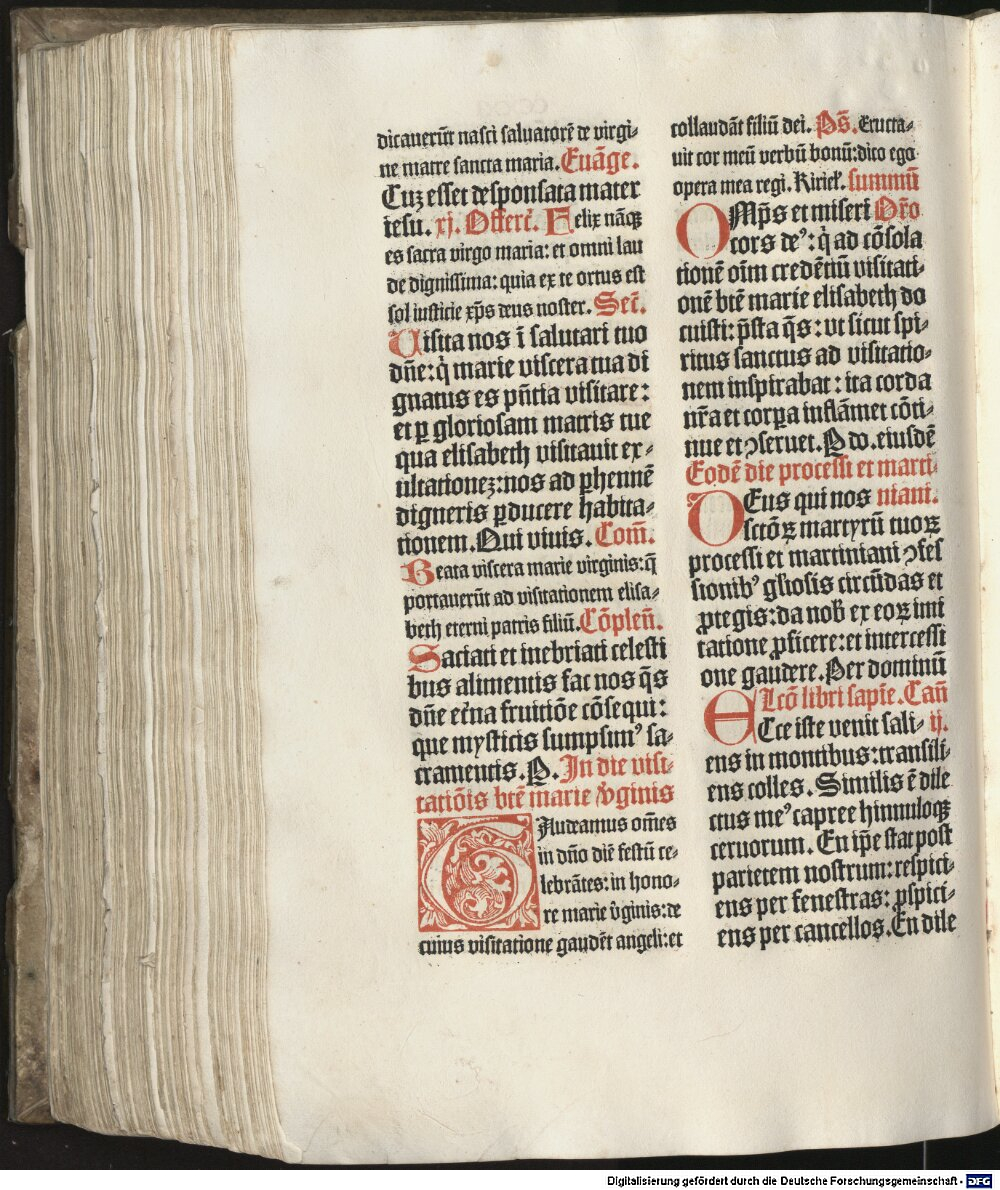 dicauerūt nasci saluatorē de virgi-
ne matre sancta maria. Euāge.
Cuz esset desponsata mater
iesu. xj. Offert̄. Felix nāqꝫ
es sacra virgo maria: et omni lau
de dignissima: quia ex te ortus est
sol iusticie xp̄s deus noster. Secī.
Uisita nos ī salutari tuo
dn̄e: q̇ marie viscera tua di
gnatus es pn̄tia visitare:
et ꝑ gloriosam matris tue
qua elisabeth visitauit ex-
ultationez: nos ad ꝑhennē
digneris ꝑducere habita-
tionem. Qui viuis. Com̄.
Beata viscera marie virginis: q̄
portauerūt ad visitationem elisa-
beth eterni patris filiū. Cōplen̄.
Saciati et inebriati celesti
bus alimentis fac nos q̄s
dn̄e et̓na fruitiōe cōsequi:
que mysticis sumpsim᾽ sa-
cramentis. P. In die visi-
tatiōis btē marie v̓ginis
Gaudeamus om̄es
in dn̄o diē festū ce-
lebrātes: in hono-
re marie v̓ginis: de
cuius visitatione gaudēt angeli: et
collaudāt filiū dei. Ps̄. Eructa-
uit cor meū verbū bonū: dico ego
opera mea regi. Kiriel̓. summū
OMp̄s et miseri Or̄o
cors de᾽: q̇ ad cōsola
tionē oīm credētiū visitati-
onē btē marie elisabeth do
cuisti: p̄sta q̄s: vt sicut spi-
ritus sanctus ad visitatio-
nem inspirabat: ita corda
nr̄a et corꝑa inflāmet cōti-
nue et ꝯseruet. P do. eiusdē
Eodē die processi et marti-
DEus qui nos niani.
sctōꝝ martyrū tuoꝝ
processi et martiniani ꝯfes
sionib᾽ gl̓iosis circūdas et
ꝓtegis: da nob̄ ex eoꝝ imi
tatione ꝓficere: et intercessi
one gaudere. Per dominū
Elcō libri sapīe. Can̄
ECce iste venit sali- ij.
ens in montibus: transili-
ens colles. Similis ē dile
ctus me᾽ capree hinnuloqꝫ
ceruorum. En ip̄e stat post
parietem nostrum: respici-
ens per fenestras: ꝓspici-
ens per cancellos. En dile
Digitalisierung gefördert durch die Deutsche Forschungsgemeinschaft - DFG